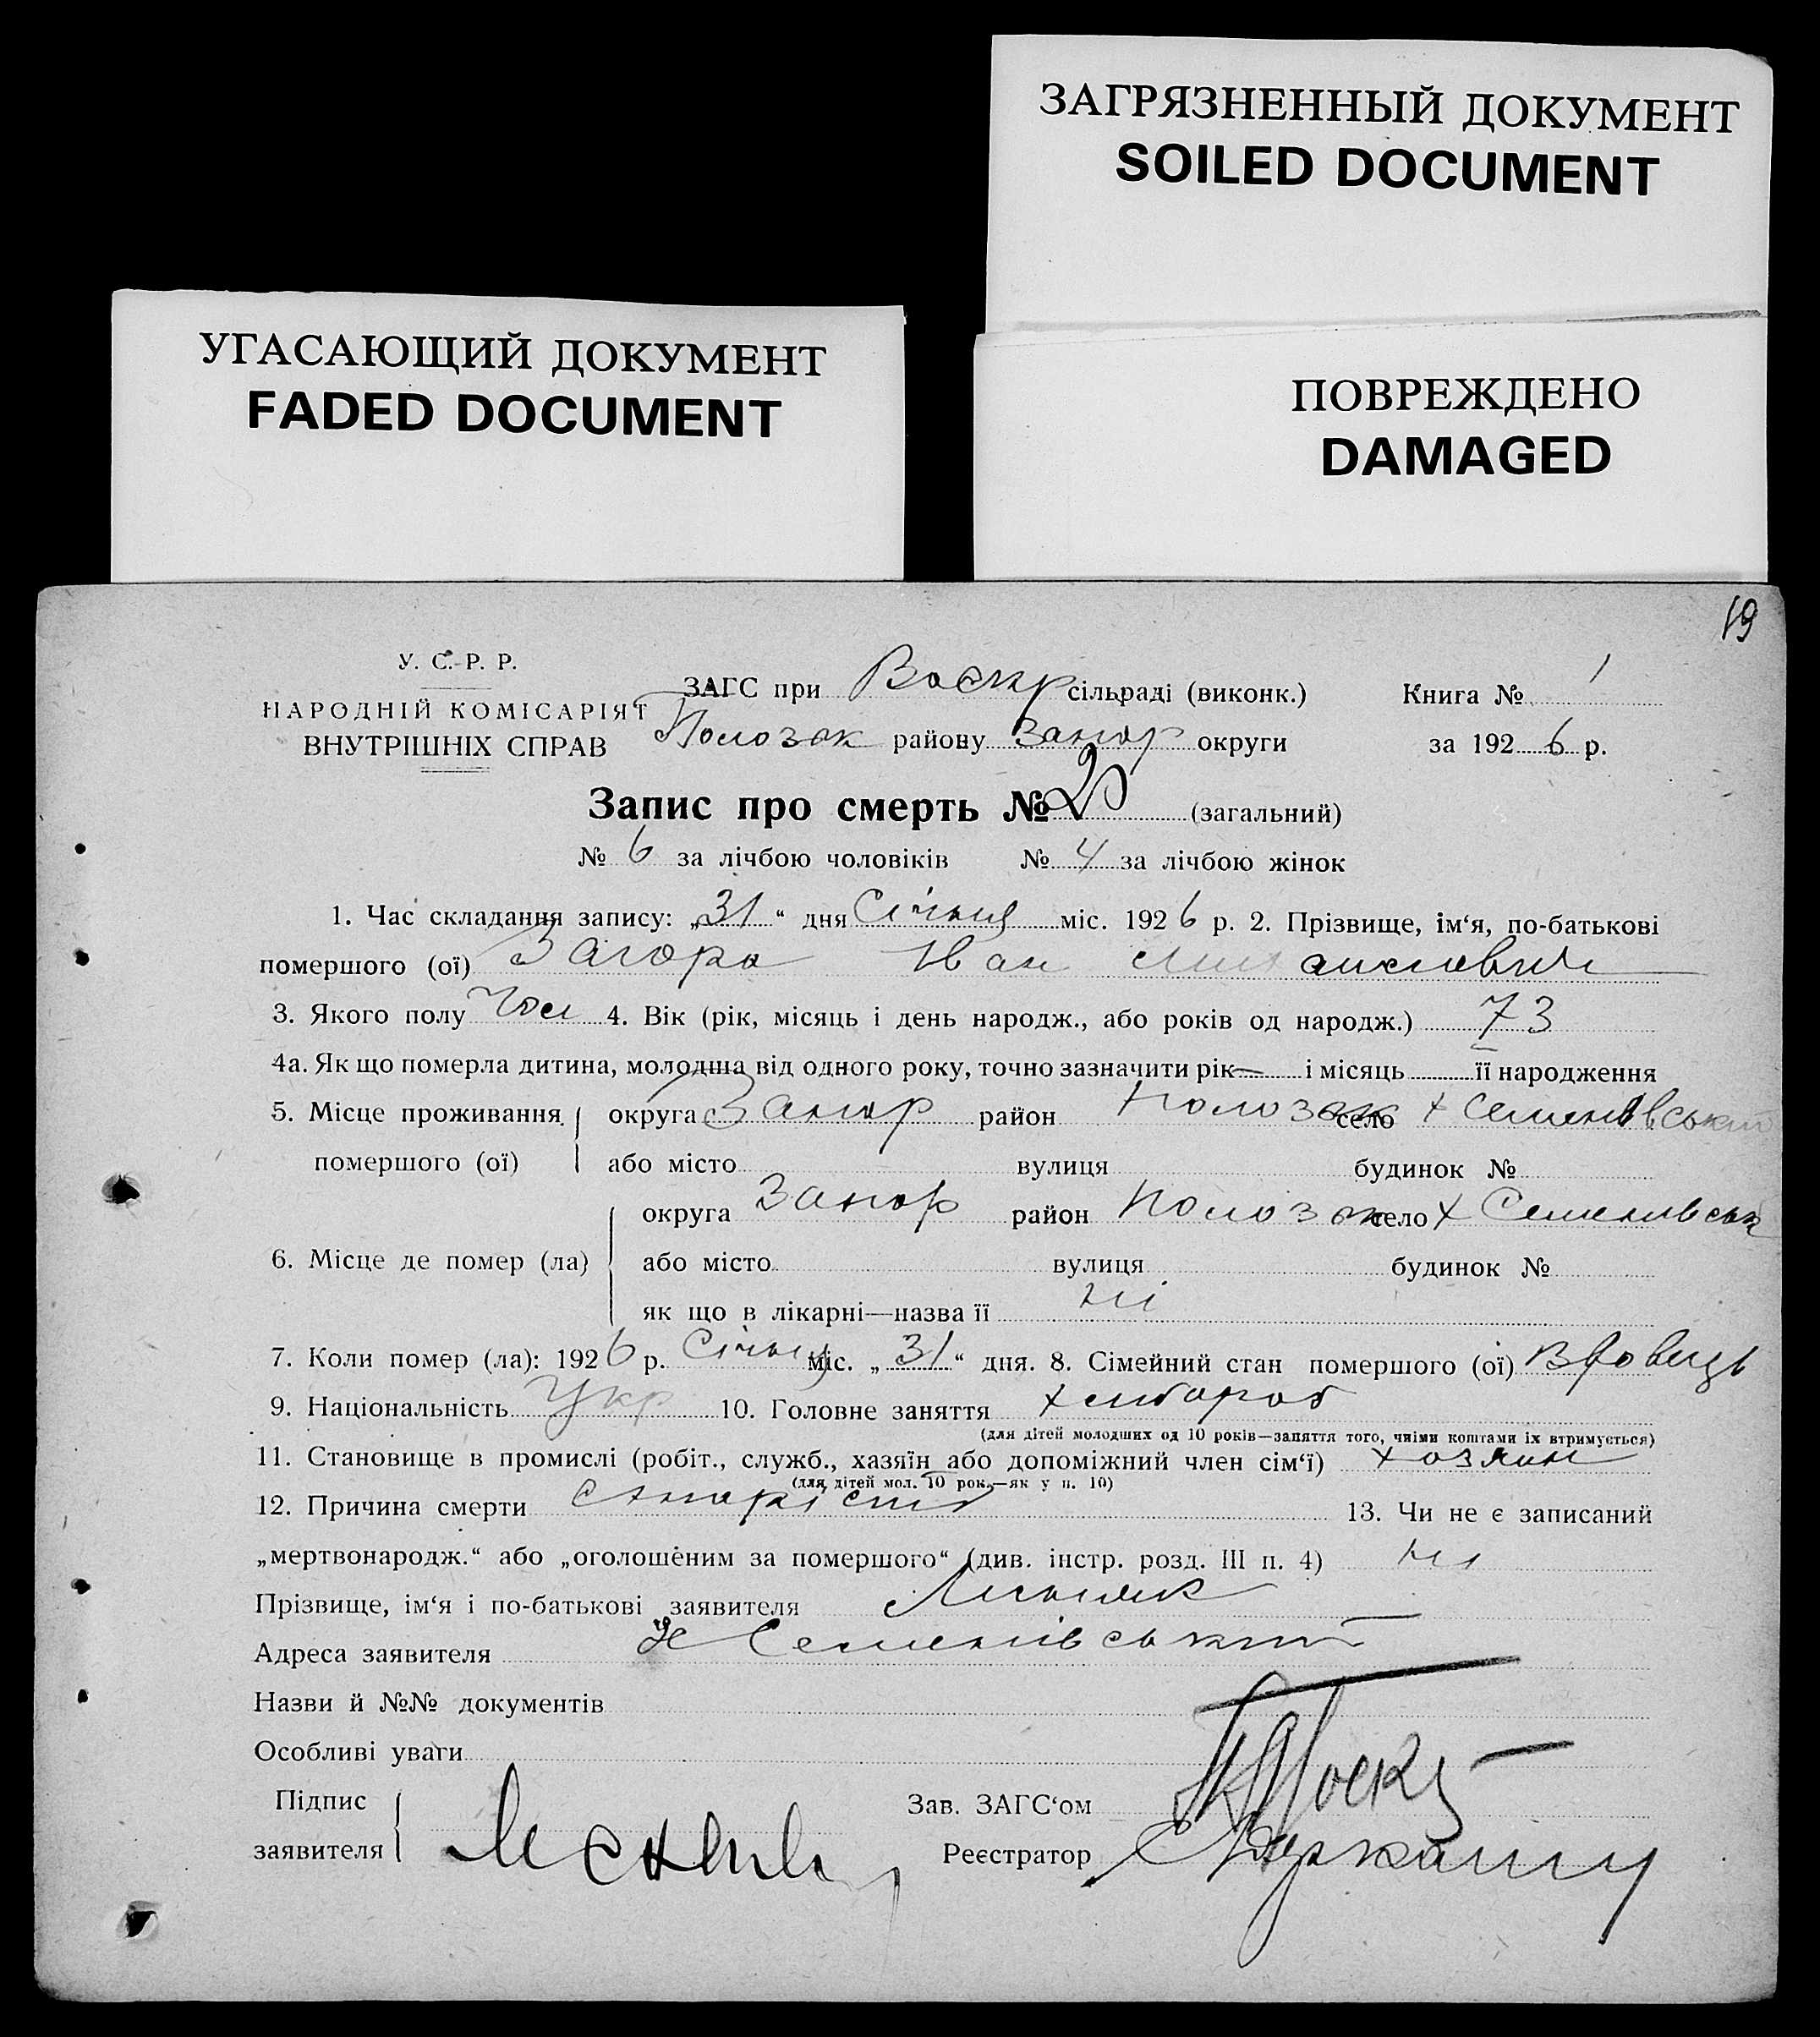 ЗАГРЯЗНЕННЫЙ ДОКУМЕНТ
SOILED DOCUMENT
УГАСАЮЩИЙ ДОКУМЕНТ
FADED DOCUMENT
ПОВРЕЖДЕНО
DAMAGED
19
У. С. Р. Р.
НАРОДНІЙ КОМІСАРІЯТ
ВНУТРІШНІХ СПРАВ
ЗАГС при Воскр сільраді (виконк.) Книга № 1
Полозьк району Запор округи за 1926 р.
Запис про смерть № (загальний)
№ 6 за лічбою чоловіків № 4 за лічбою жінок
1. Час складання запису: „31“ дня Січня міс. 1926 р. 2. Прізвище, ім‘я, по-батькові
помершого (ої) Загора Іван
3. Якого полу Чол 4. Вік (рік, місяць і день народж., або років од народж.) 73
4а. Як що померла дитина, молодша від одного року, точно зазначити рік — і місяць її народження
5. Місце проживання помершого (ої) округа Запор район Полозьк село х Семенівський
або місто вулиця будинок №
6. Місце де помер (ла) округа Запор район Полозьк село х Семенивськ
або місто вулиця будинок №
як що в лікарні—назва її ні
7. Коли помер (ла): 1926 р. Січня міс. „31“ дня. 8. Сімейний стан помершого (ої) вдовець
9. Національність Укр 10. Головне заняття хлібороб
(для дітей молодших од 10 років—заняття того, чиїми коштами їх втримується)
11. Становище в промислі (робіт., служб., хазяїн або допоміжний член сім‘ї) хозяин
(для дітей мол. 10 рок.—як у п. 10)
12. Причина смерти старість 13. Чи не є записаний
„мертвонародж.“ або „оголошеним за помершого“ (див. інстр. розд. III п. 4) ні
Прізвище, ім‘я і по-батькові заявителя
Адреса заявителя х Семенівський
Назви й №№ документів
Особливі уваги
Підпис заявителя
Зав. ЗАГС‘ом
Реєстратор